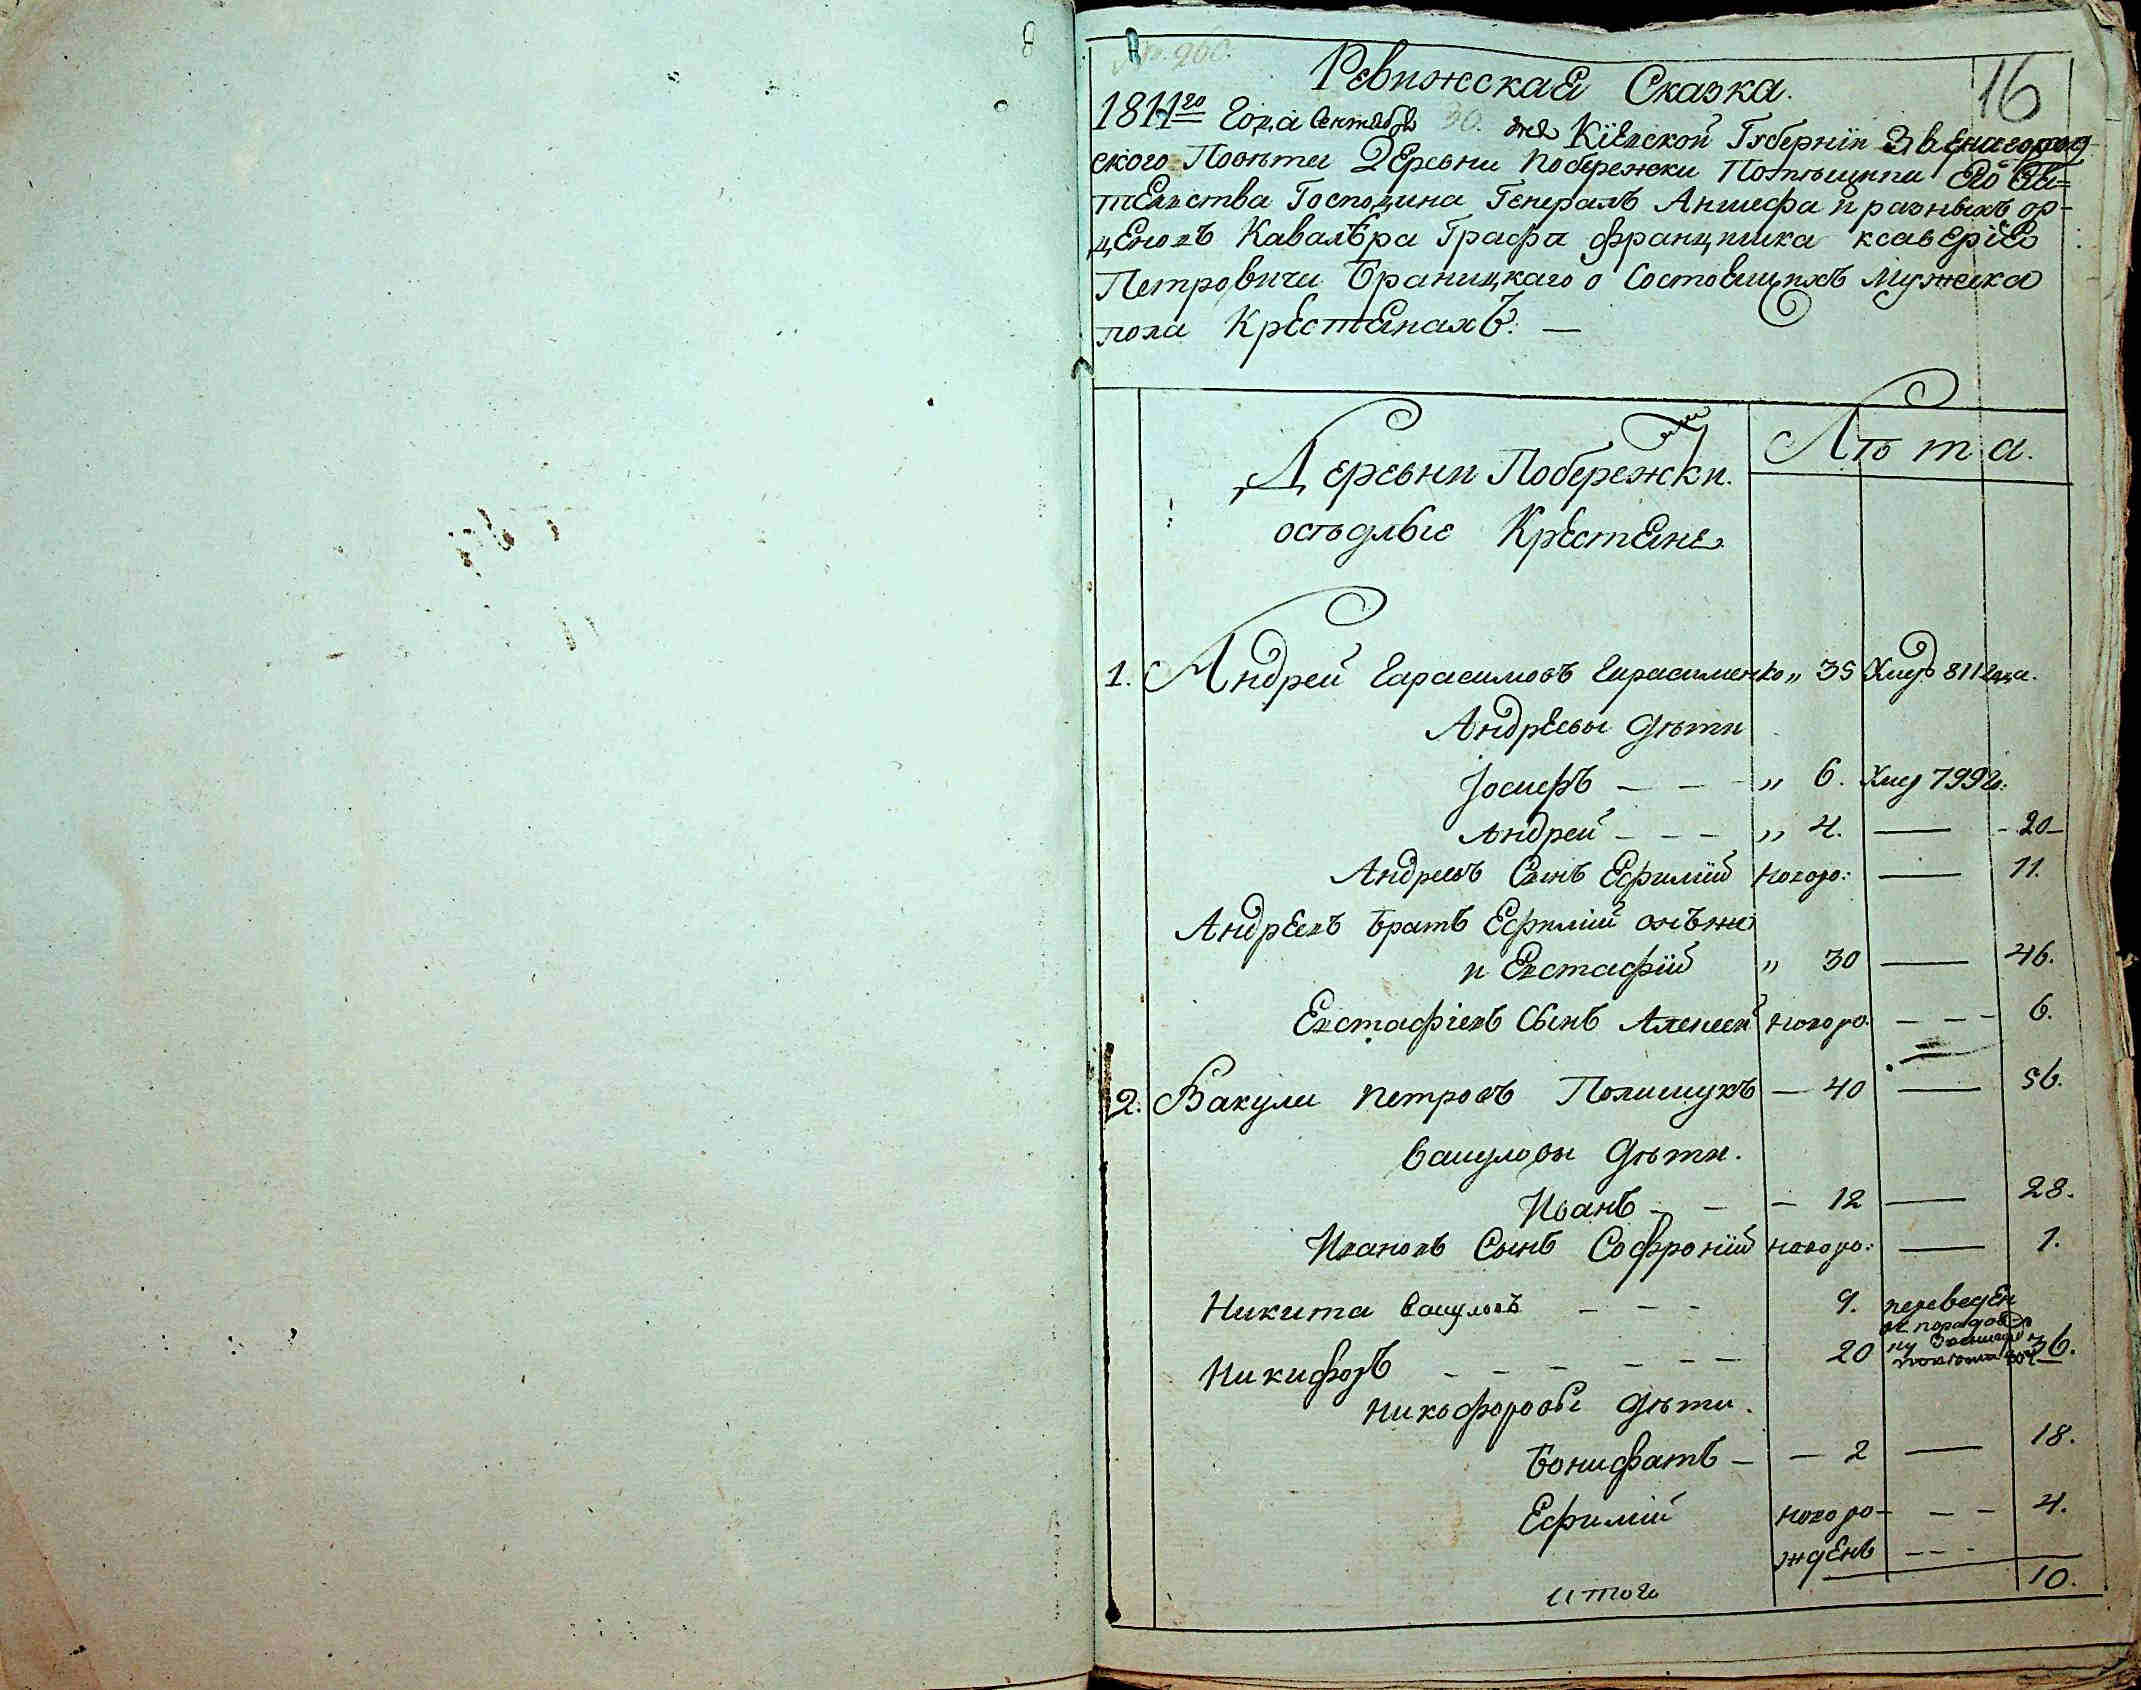 № 260.
16
Ревижская Сказка.
1811го Года Сентября 30. дня Кіевской Губерніи Звенигород
ского Повѣта Деревни Побережки Помѣщика Его Сіа=
телства Господина Генералъ Аншефа и разныхъ ор-
деновъ Кавалѣра Графа Францишка Ксаверіего
Петровича Браницкаго о Состоящихъ Мужеска
пола Крестянахъ. —
Деревни Побережки.
осѣдлые Крестяне
Лѣта.
1. Андрей Гарасимовъ Гарасименко „ 35 Умеръ 811 года.
Андреевы дѣти
Іосифъ — — — „ 6. Умер 799 го:
Андрей — — — „ 4. — 20
Андреевъ Сынъ Ефимій новоро: — 11.
Андреевъ братъ Ефимій онъже
и Евстафій „ 30 — 46.
Евстафіевъ Сынъ Алексей новоро. — — — 6.
2. Вакула Петровъ Полищукъ — 40 — 56.
Вакуловы дѣти.
Иванъ — — — 12 — 28.
Ивановъ Сынъ Софроній новоро: — 1.
Никита Вакуловъ — — — 9. переведен
Никифоръ — — — — — — 20 36.
Никифоровы дѣти.
Бонифатъ — — 2 — 18.
Ефимій новоро- — — 4.
жденъ — — -
итого 10.